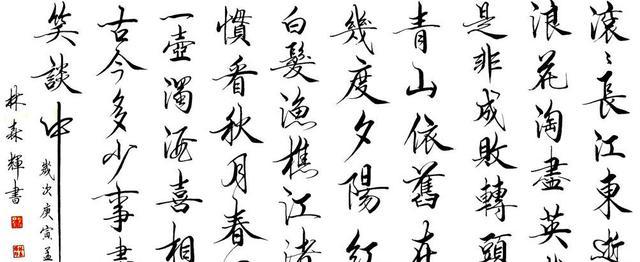 滾〻長江東逝
浪花淘盡英
是非成敗轉頭
青山依舊在
幾度夕陽紅
白髮漁樵江渚
慣看秋月春
一壺濁酒喜相
古今多少事
笑談中
歲次庚寅孟
林森輝書